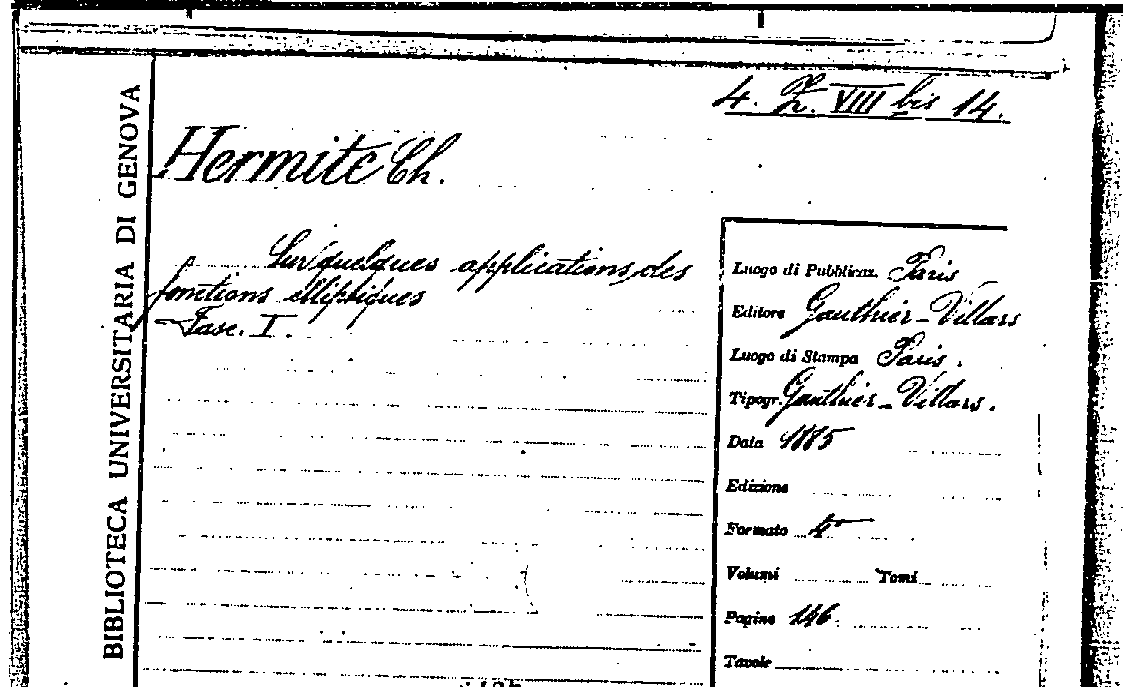 4. Z. VIII bis 14.
BIBLIOTECA UNIVERSITARIA DI GENOVA
Hermite Ch.
Sur quelques applications des
fonctions elliptiques
Fasc. I.
Luogo di Pubblicaz. Paris
Editore Gauthier-Villars
Luogo di Stampa Paris.
Tipogr. Gauthier-Villars.
Data 1885
Edizione
Formato 4°
Volumi Tomi
Pagine 146.
Tavole